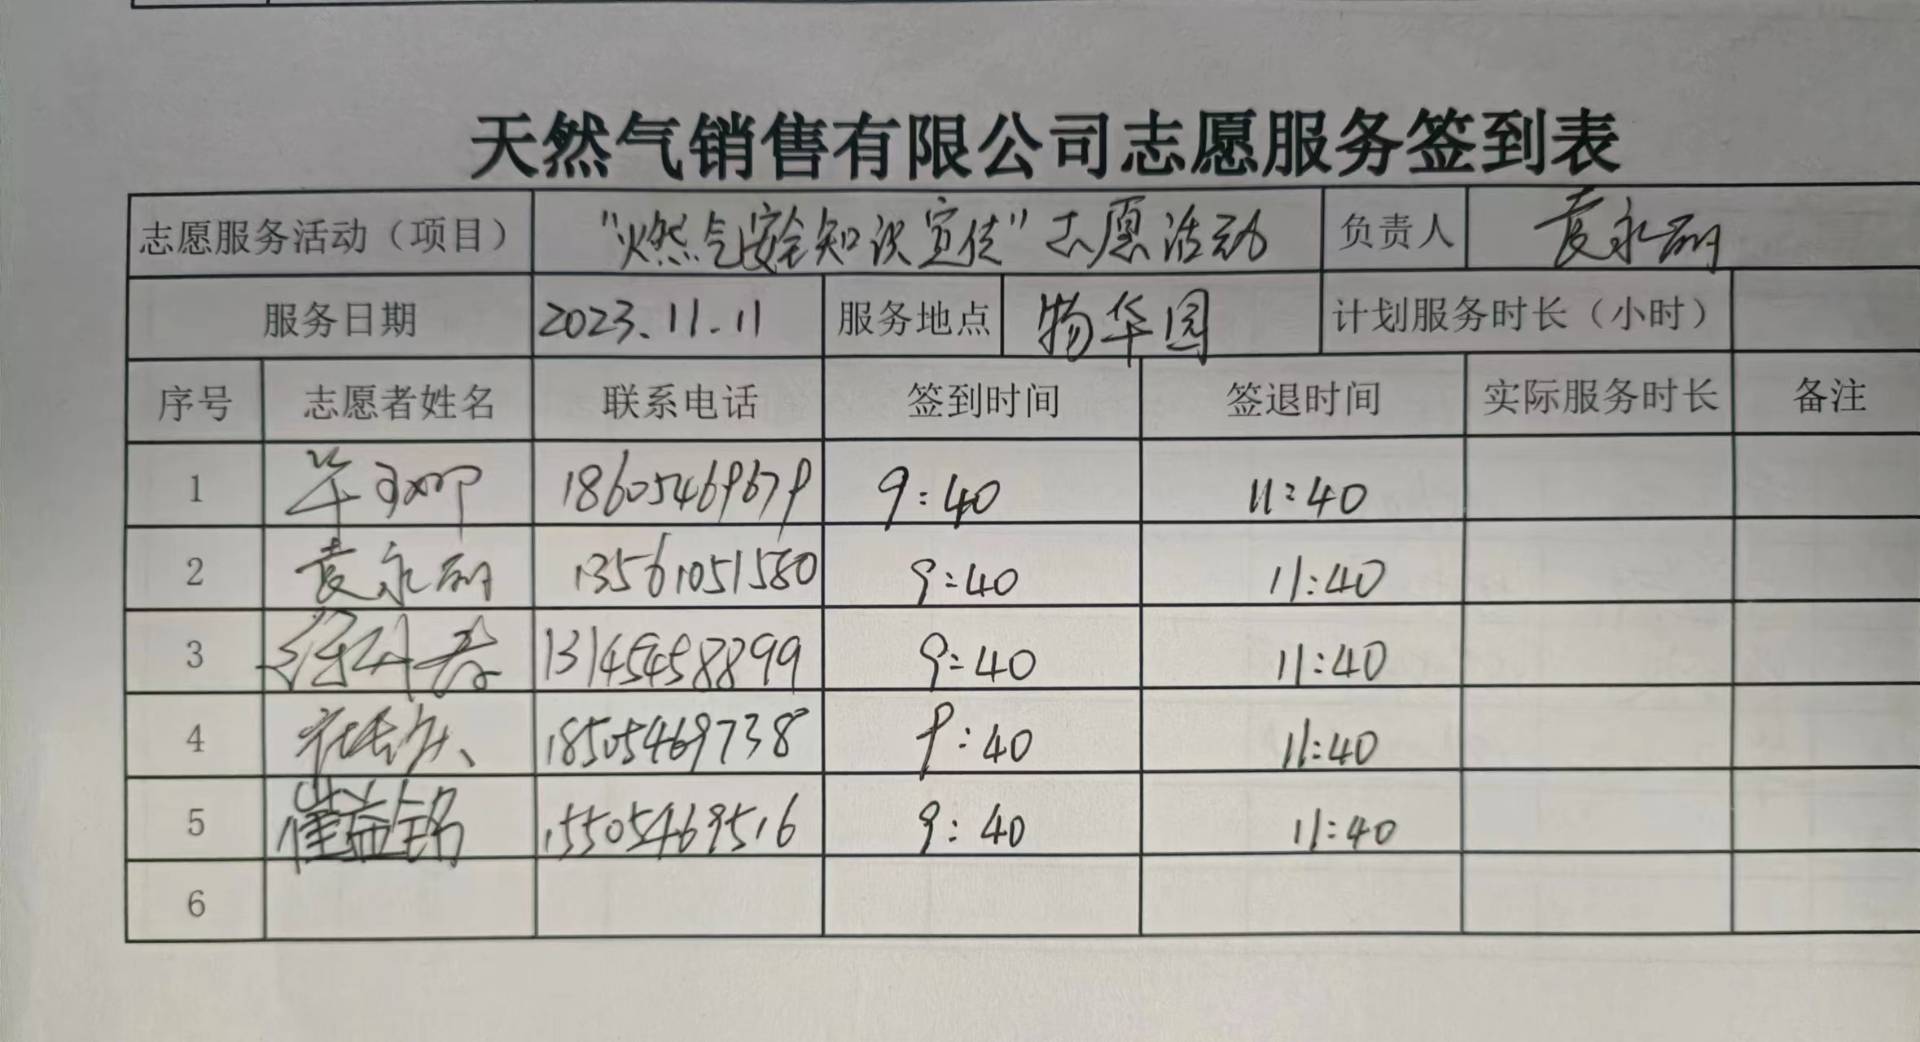 天然气销售有限公司志愿服务签到表
志愿服务活动（项目） “燃气安全知识宣传”志愿活动 负责人 袁永丽
服务日期 2023.11.11 服务地点 物华园 计划服务时长（小时）
序号 志愿者姓名 联系电话 签到时间 签退时间 实际服务时长 备注
1 18605469679 9:40 11:40
2 袁永丽 13561051580 9:40 11:40
3 13145458899 9:40 11:40
4 18505469738 9:40 11:40
5 崔益铭 15505469516 9:40 11:40
6